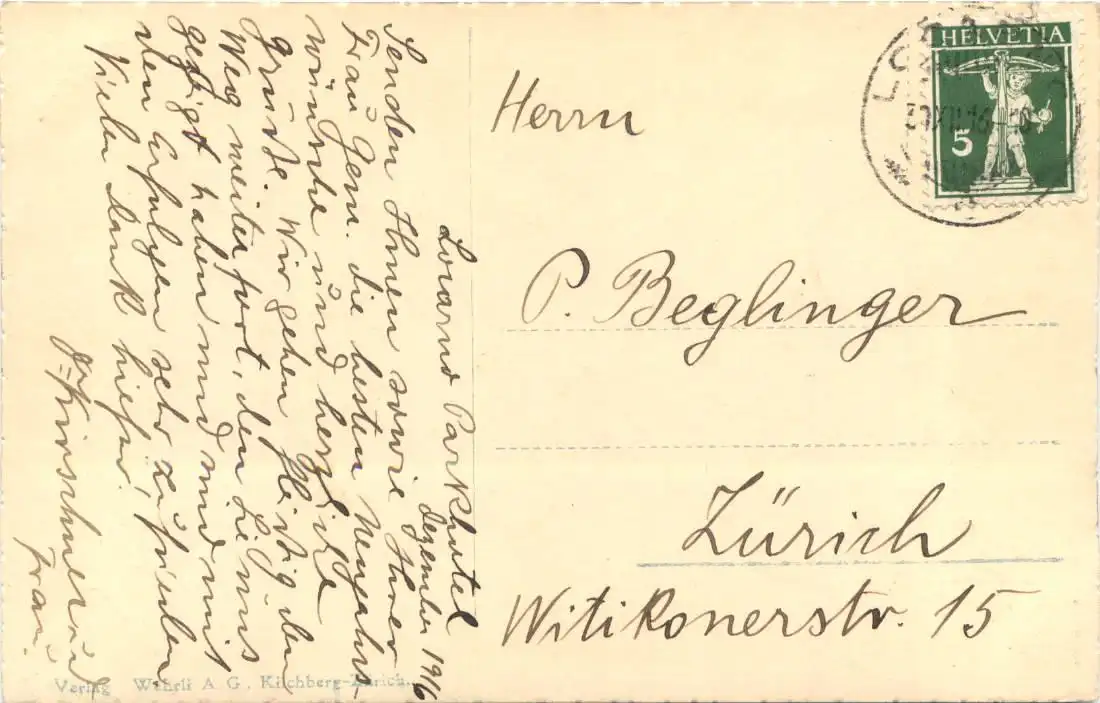 Locarno Parkhotel
Dezember 1916
Senden Ihnen sowie Ihrer
Frau Gem. die besten Neujahrs-
wünsche und herzliche
Grüsse. Wir gehen fleissig den
Weg weiter fort, den Sie uns
gezeigt haben und sind mit
den Erfolgen sehr zufrieden
Vielen Dank hiefür.
Kirschner und
Frau.
Herrn
P. Beglinger
Zürich
Witikonerstr. 15
HELVETIA
5
Verlag Wehrli A. G., Kilchberg-Zürich.